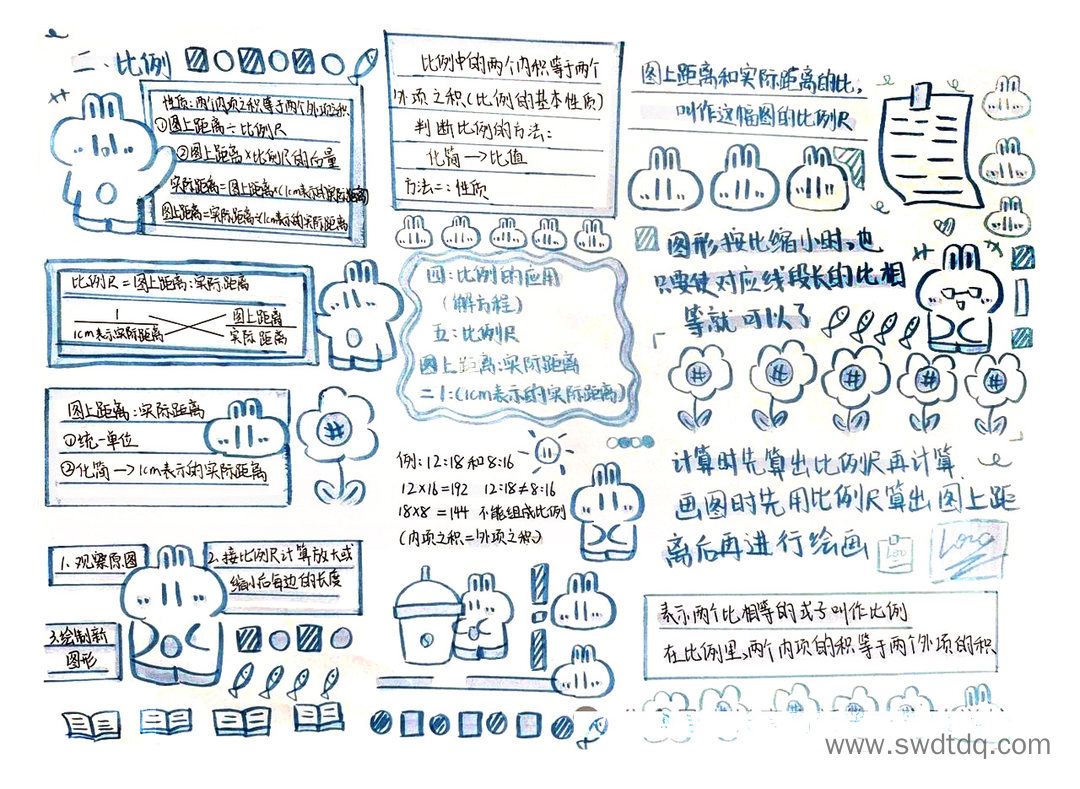 二、比例
性质:两个内项之积等于两个外项积
①图上距离÷比例尺
②图上距离×比例尺的向量
实际距离=图上距离×(1cm表示的实际距离)
图上距离=实际距离÷(1cm表示的实际距离
比例中的两个内积等于两个
外项之积(比例的基本性质)
判断比例的方法:
化简→比值
方法二:性质
图上距离和实际距离的比,
叫作这幅图的比例尺
比例尺=图上距离:实际距离
1
1cm表示实际距离
图上距离
实际距离
四:比例的应用
(解方程)
五:比例尺
图上距离:实际距离
=1:(1cm表示的实际距离)
图形按比缩小时,也
只要使对应线段长的比相
等就可以了
图上距离:实际距离
①统一单位
②化简→1cm表示的实际距离
例:12:18和8:16
12×16=192 12:18≠8:16
18×8=144 不能组成比例
(内项之积=外项之积)
计算时先算出比例尺再计算
画图时先用比例尺算出图上距
离后再进行绘画
1.观察原图
2.按比例尺计算放大或
缩小后每边的长度
3.绘制新
图形
表示两个比相等的式子叫作比例
在比例里,两个内项的积等于两个外项的积
www.swdtdq.com